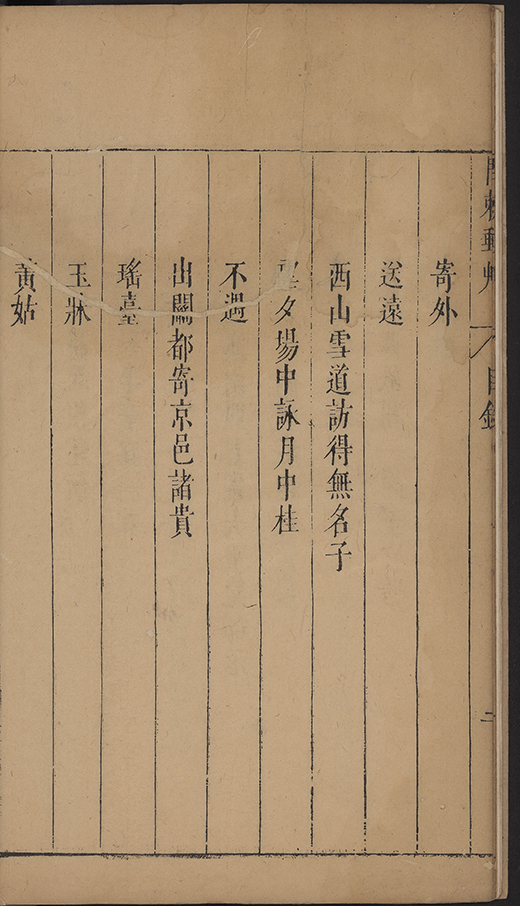 問棘郵艸 目錄 二
寄外
送遠
西山雪道訪得無名子
望夕場中詠月中桂
不遇
出關都寄京邑諸貴
瑤臺
玉牀
黃姑